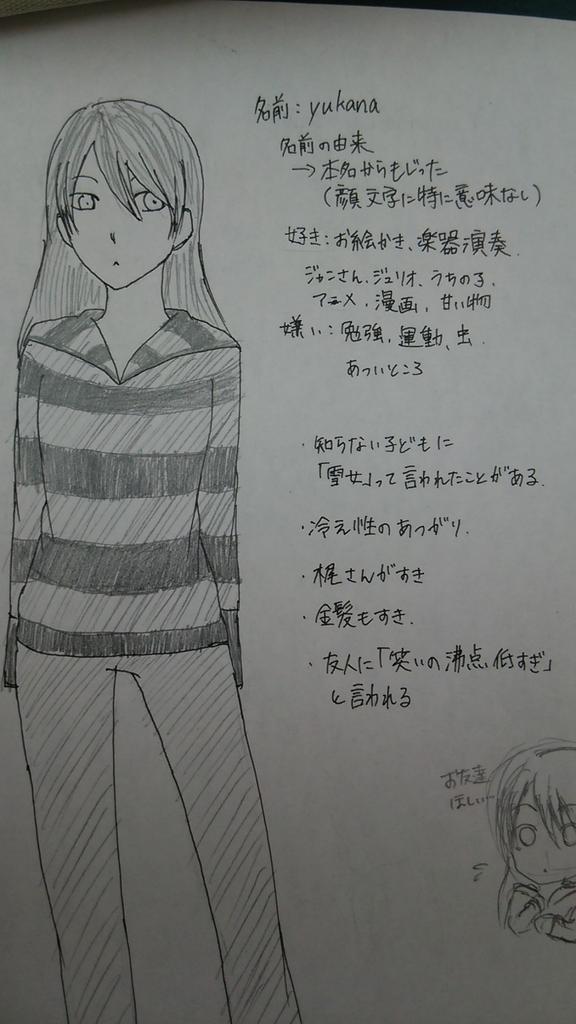 名前：yukana
名前の由来
→本名からもじった
（顔文字に特に意味ない）
好き：お絵かき、楽器演奏、
ジャンさん、ジュリオ、うちの子、
アニメ、漫画、甘い物
嫌い：勉強、運動、虫
あついところ
・知らない子どもに
「雪女」って言われたことがある。
・冷え性のあつがり。
・梶さんがすき
・金髪もすき．
・友人に「笑いの沸点低すぎ」
と言われる
お友達
ほしい…